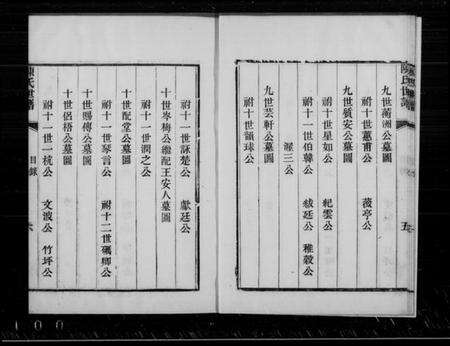 陳氏世譜
五
九世蘅洲公墓圖
祔十世蕙甫公 菠亭公
九世質安公墓圖
祔十世星如公 紀雲公
祔十世伯韓公 紱廷公 稚穀公
渥三公
九世芸軒公墓圖
祔十世韻球公
祔十一世詠楚公 獻廷公
十世岑梅公繼配王安人墓圖
祔十一世潤之公
十世配堂公墓圖
祔十一世琴言公 祔十二世珮卿公
十世賜傳公墓圖
十世侶梧公墓圖
祔十一世一梡公 文波公 竹坪公
陳氏世譜
目錄
六
100